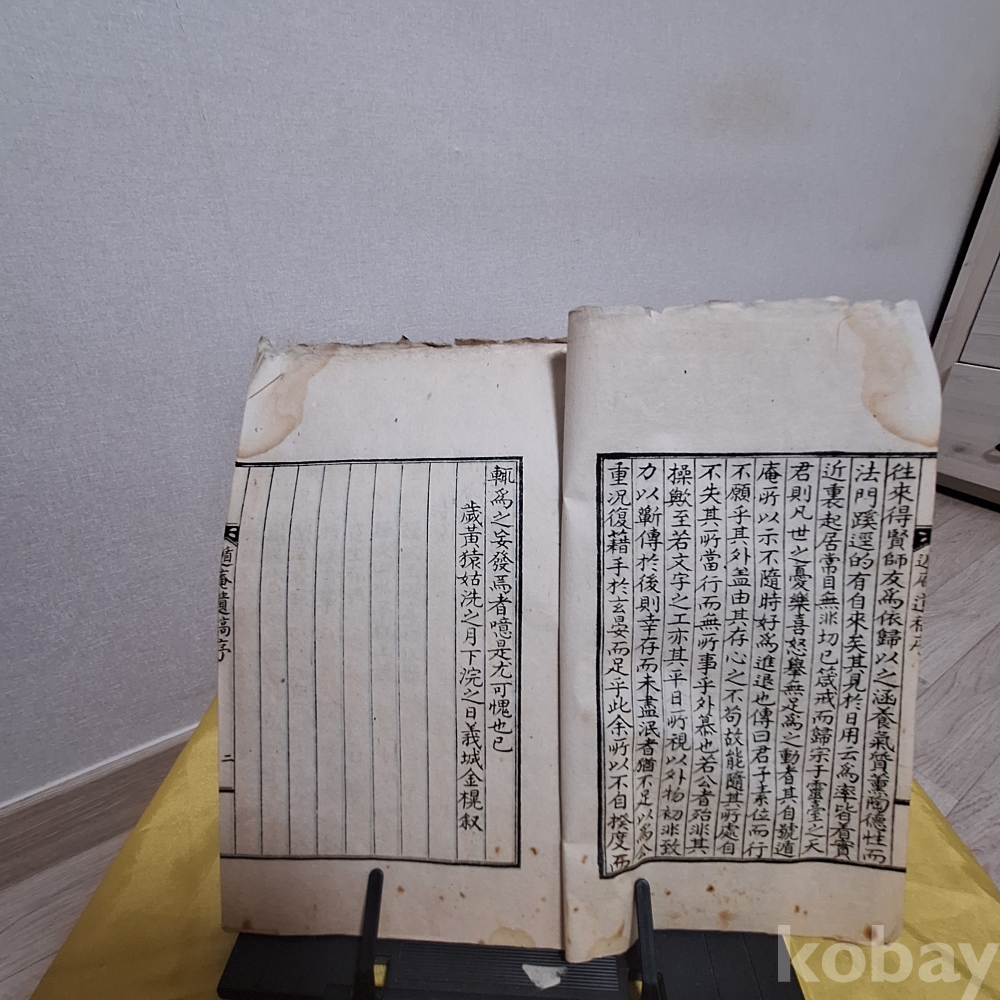 往來得賢師友爲依歸以之涵養氣質薰陶德性而
法門蹊逕的有自來矣其見於日用云爲率皆着實
近裏起居常目無非切已箴戒而歸宗于靈臺之天
君則凡世之憂樂喜怒擧無足爲之動者其自號遁
庵所以示不隨時好爲進退也傳曰君子素位而行
不願乎其外盖由其存心之不苟故能隨其所處自
不失其所當行而無所事乎外慕也若公者殆非其
操歟至若文字之工亦其平日所視以外物初非致
力以蘄傳於後則幸存而未盡泯者猶不足以爲公
重况復藉手於玄晏而足乎此余所以不自揆度而
輒爲之妄發焉者噫是尤可愧也已
歲黃猿姑洗之月下浣之日義城金榥叙
遁庵遺稿序
二
kobay